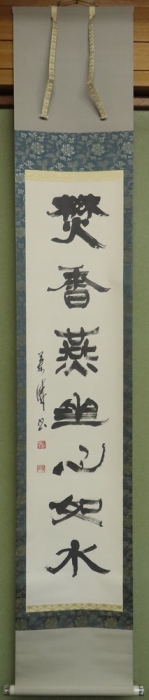 焚香燕坐心如水